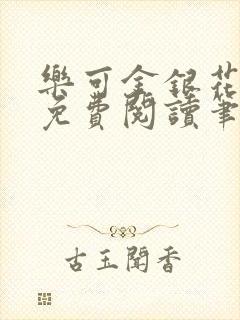 樂可金銀花
免費閱讀筆
古玉聞香